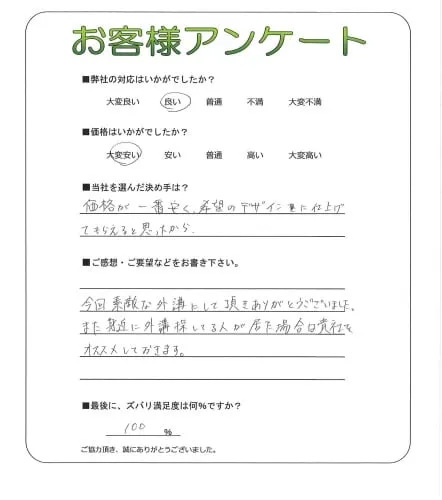 お客様アンケート
■弊社の対応はいかがでしたか？
大変良い 良い 普通 不満 大変不満
■価格はいかがでしたか？
大変安い 安い 普通 高い 大変高い
■当社を選んだ決め手は？
価格が一番安く、希望のデザイン に仕上げ
てもらえると思ったから.
■ご感想・ご要望などをお書き下さい。
今回素敵な外溝にして頂きありがとうございました。
また身近に外溝探してる人が居た場合は貴社を
オススメしておきます。
■最後に、ズバリ満足度は何％ですか？
100 %
ご協力頂き、誠にありがとうございました。